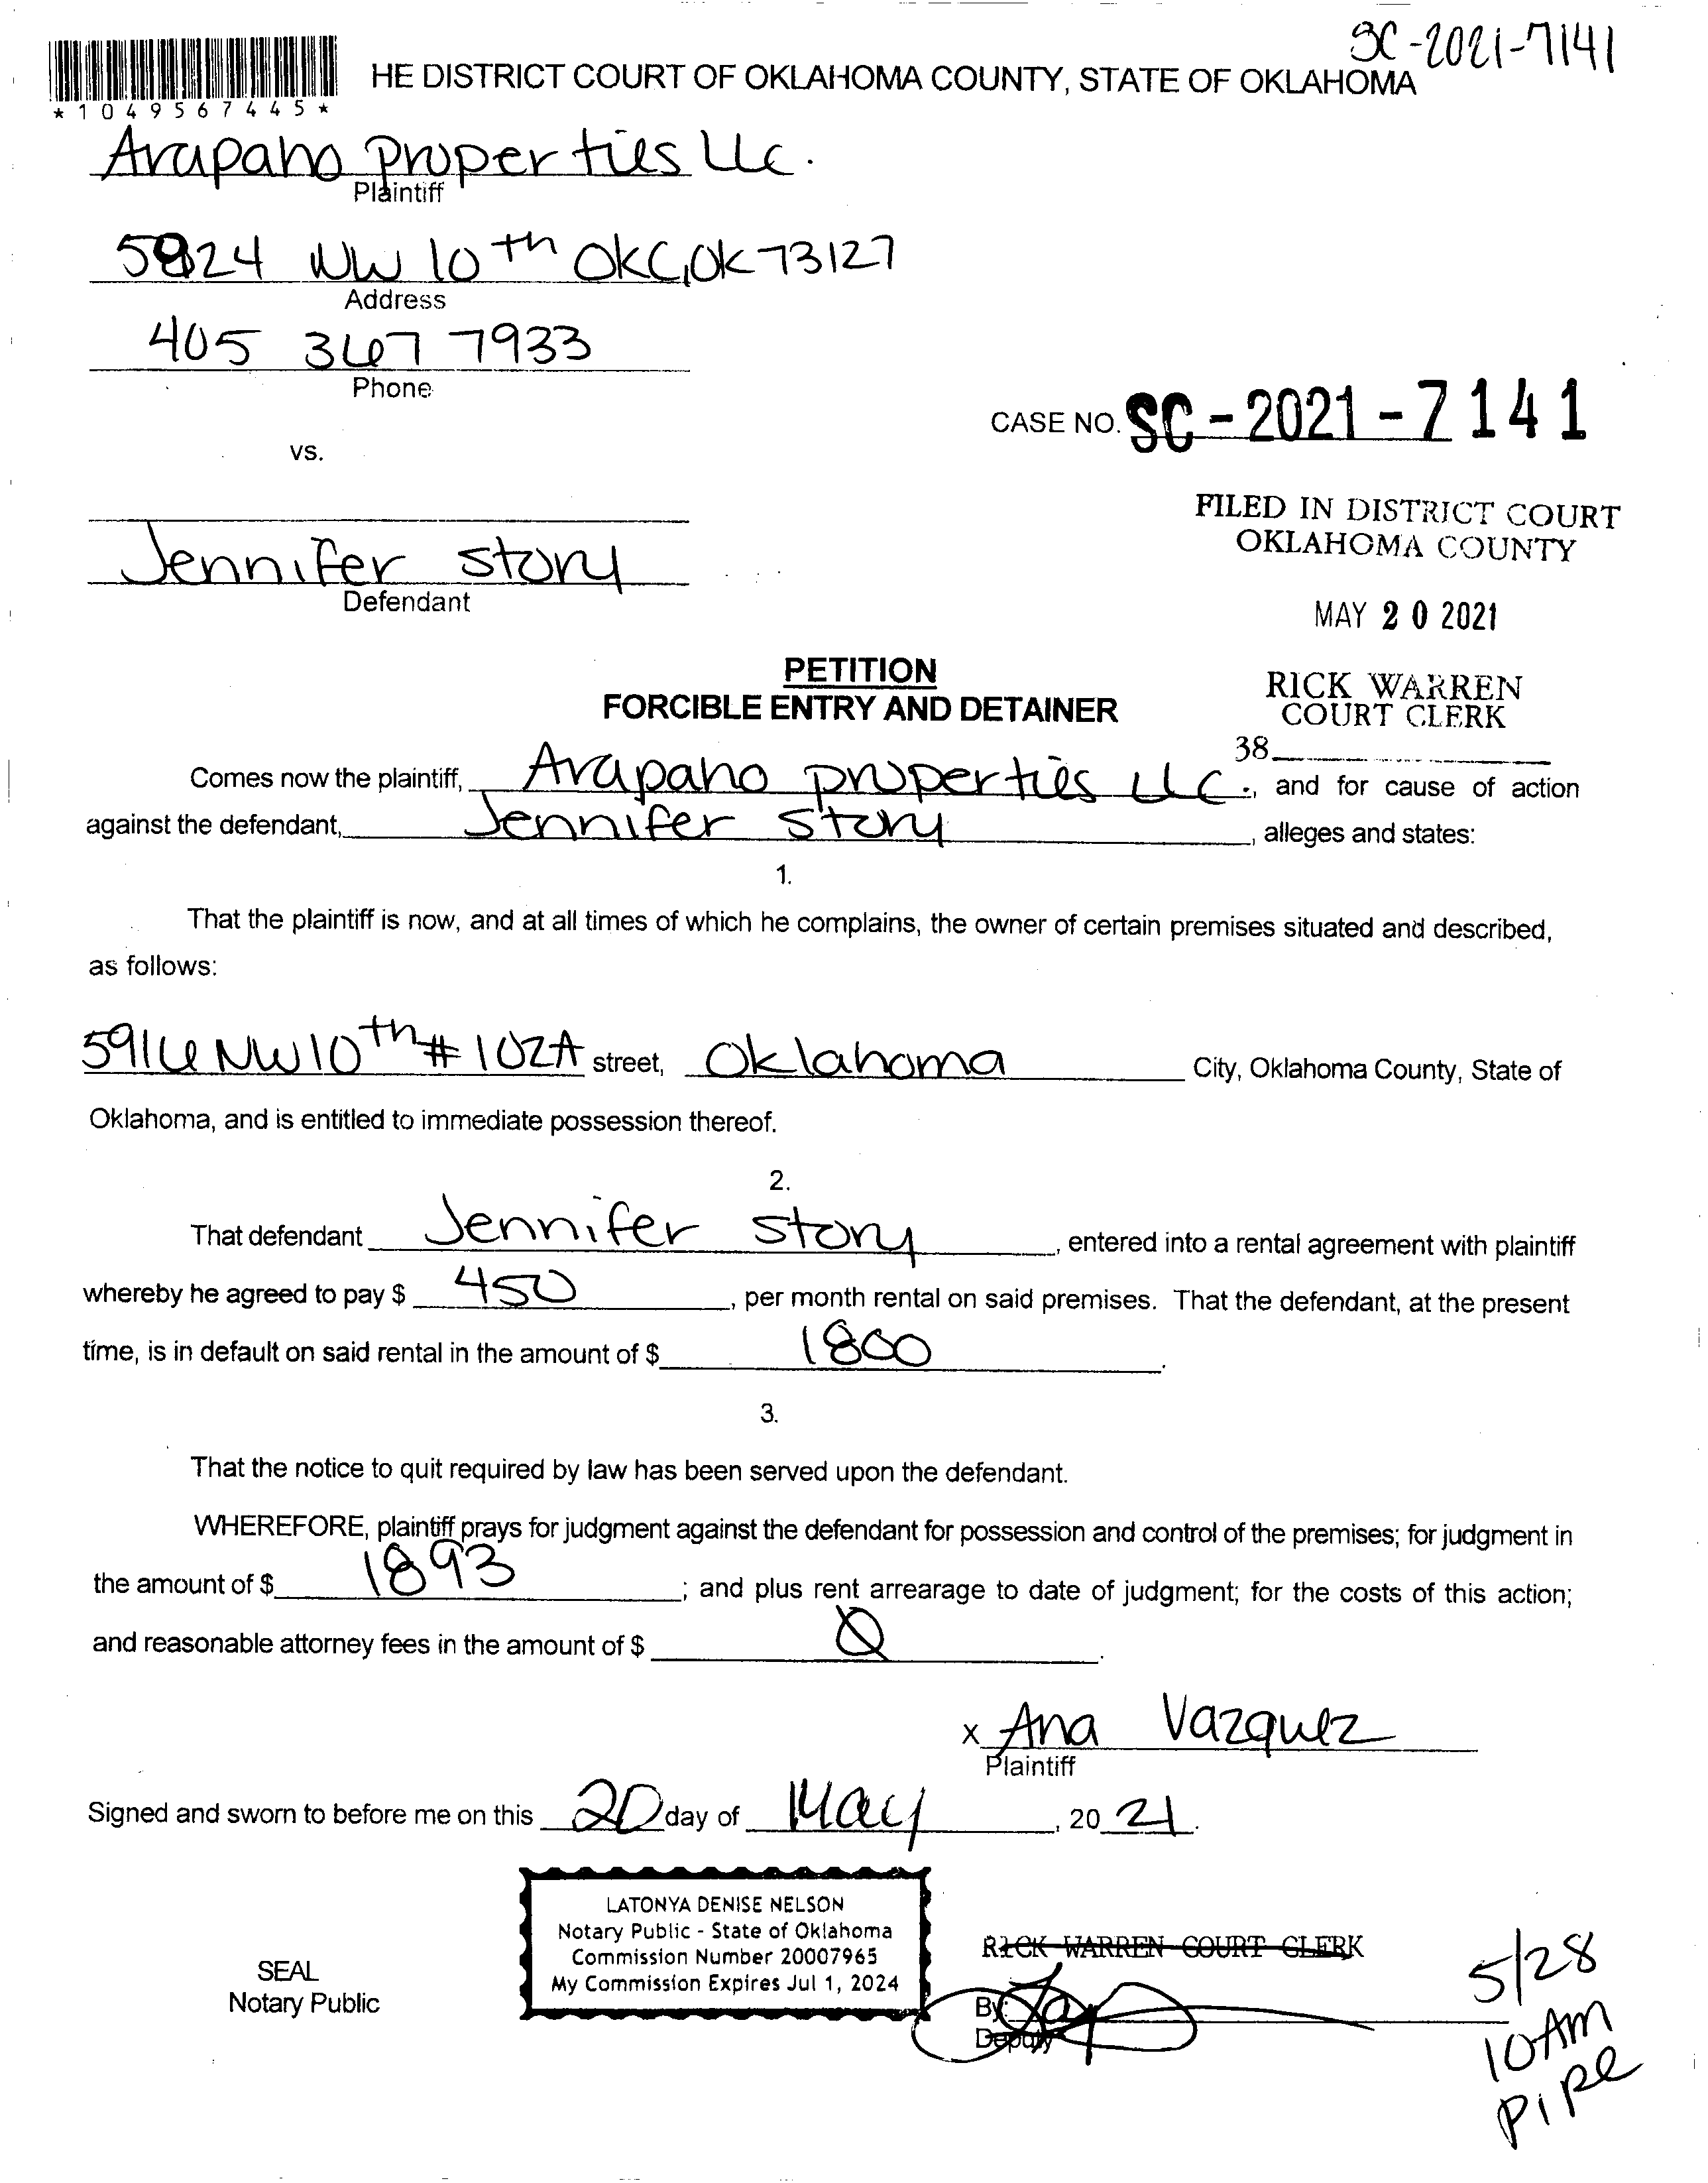 SC-2021-7141
HE DISTRICT COURT OF OKLAHOMA COUNTY, STATE OF OKLAHOMA
*1049567445*
Arapaho properties LLC.
Plaintiff
5924 NW 10th OKC, OK 73127
Address
405 367 7933
Phone
CASE NO. SC-2021-7141
vs.
FILED IN DISTRICT COURT
OKLAHOMA COUNTY
Jennifer story
Defendant
MAY 20 2021
PETITION
FORCIBLE ENTRY AND DETAINER
RICK WARREN
COURT CLERK
38
Comes now the plaintiff, Arapaho properties LLC., and for cause of action
against the defendant, Jennifer story, alleges and states:
1.
That the plaintiff is now, and at all times of which he complains, the owner of certain premises situated and described,
as follows:
5916 NW 10th #102A street, Oklahoma City, Oklahoma County, State of
Oklahoma, and is entitled to immediate possession thereof.
2.
That defendant Jennifer story, entered into a rental agreement with plaintiff
whereby he agreed to pay $ 450, per month rental on said premises. That the defendant, at the present
time, is in default on said rental in the amount of $ 1800.
3.
That the notice to quit required by law has been served upon the defendant.
WHEREFORE, plaintiff prays for judgment against the defendant for possession and control of the premises; for judgment in
the amount of $ 1893; and plus rent arrearage to date of judgment; for the costs of this action;
and reasonable attorney fees in the amount of $ 0.
x Ana Vazquez
Plaintiff
Signed and sworn to before me on this 20 day of May, 20 21.
LATONYA DENISE NELSON
Notary Public - State of Oklahoma
Commission Number 20007965
My Commission Expires Jul 1, 2024
SEAL
Notary Public
RICK WARREN COURT CLERK
By:
Deputy
5/28
10AM
PIPE